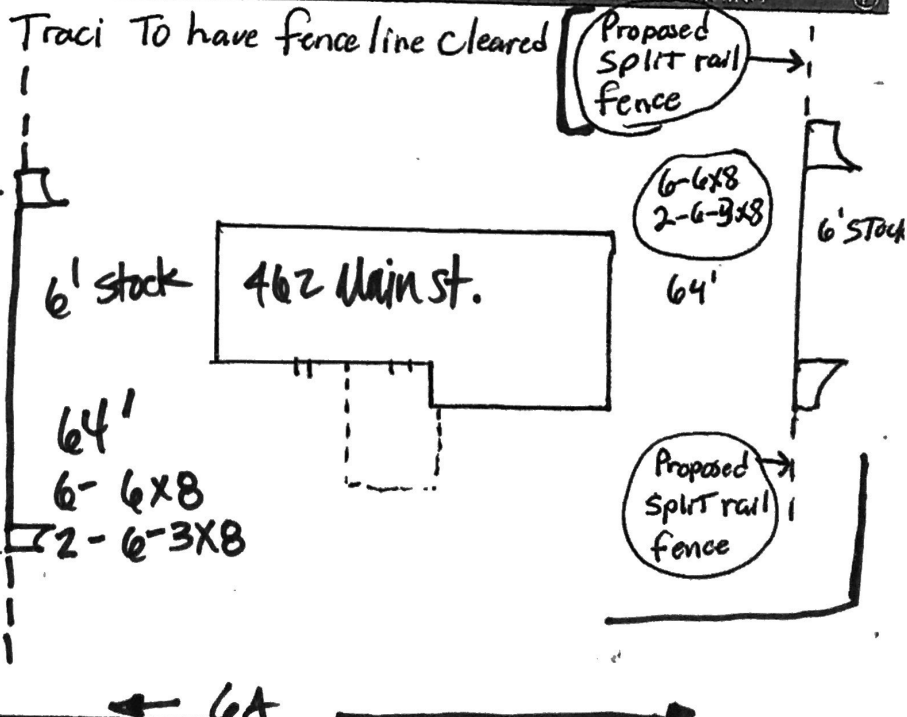 Traci To have fence line cleared
Proposed
Split rail
fence
6-6x8
2-6-3x8
6' Stock
64'
6' stock
462 Main st.
64'
6- 6x8
2- 6-3x8
Proposed
split rail
fence
6A